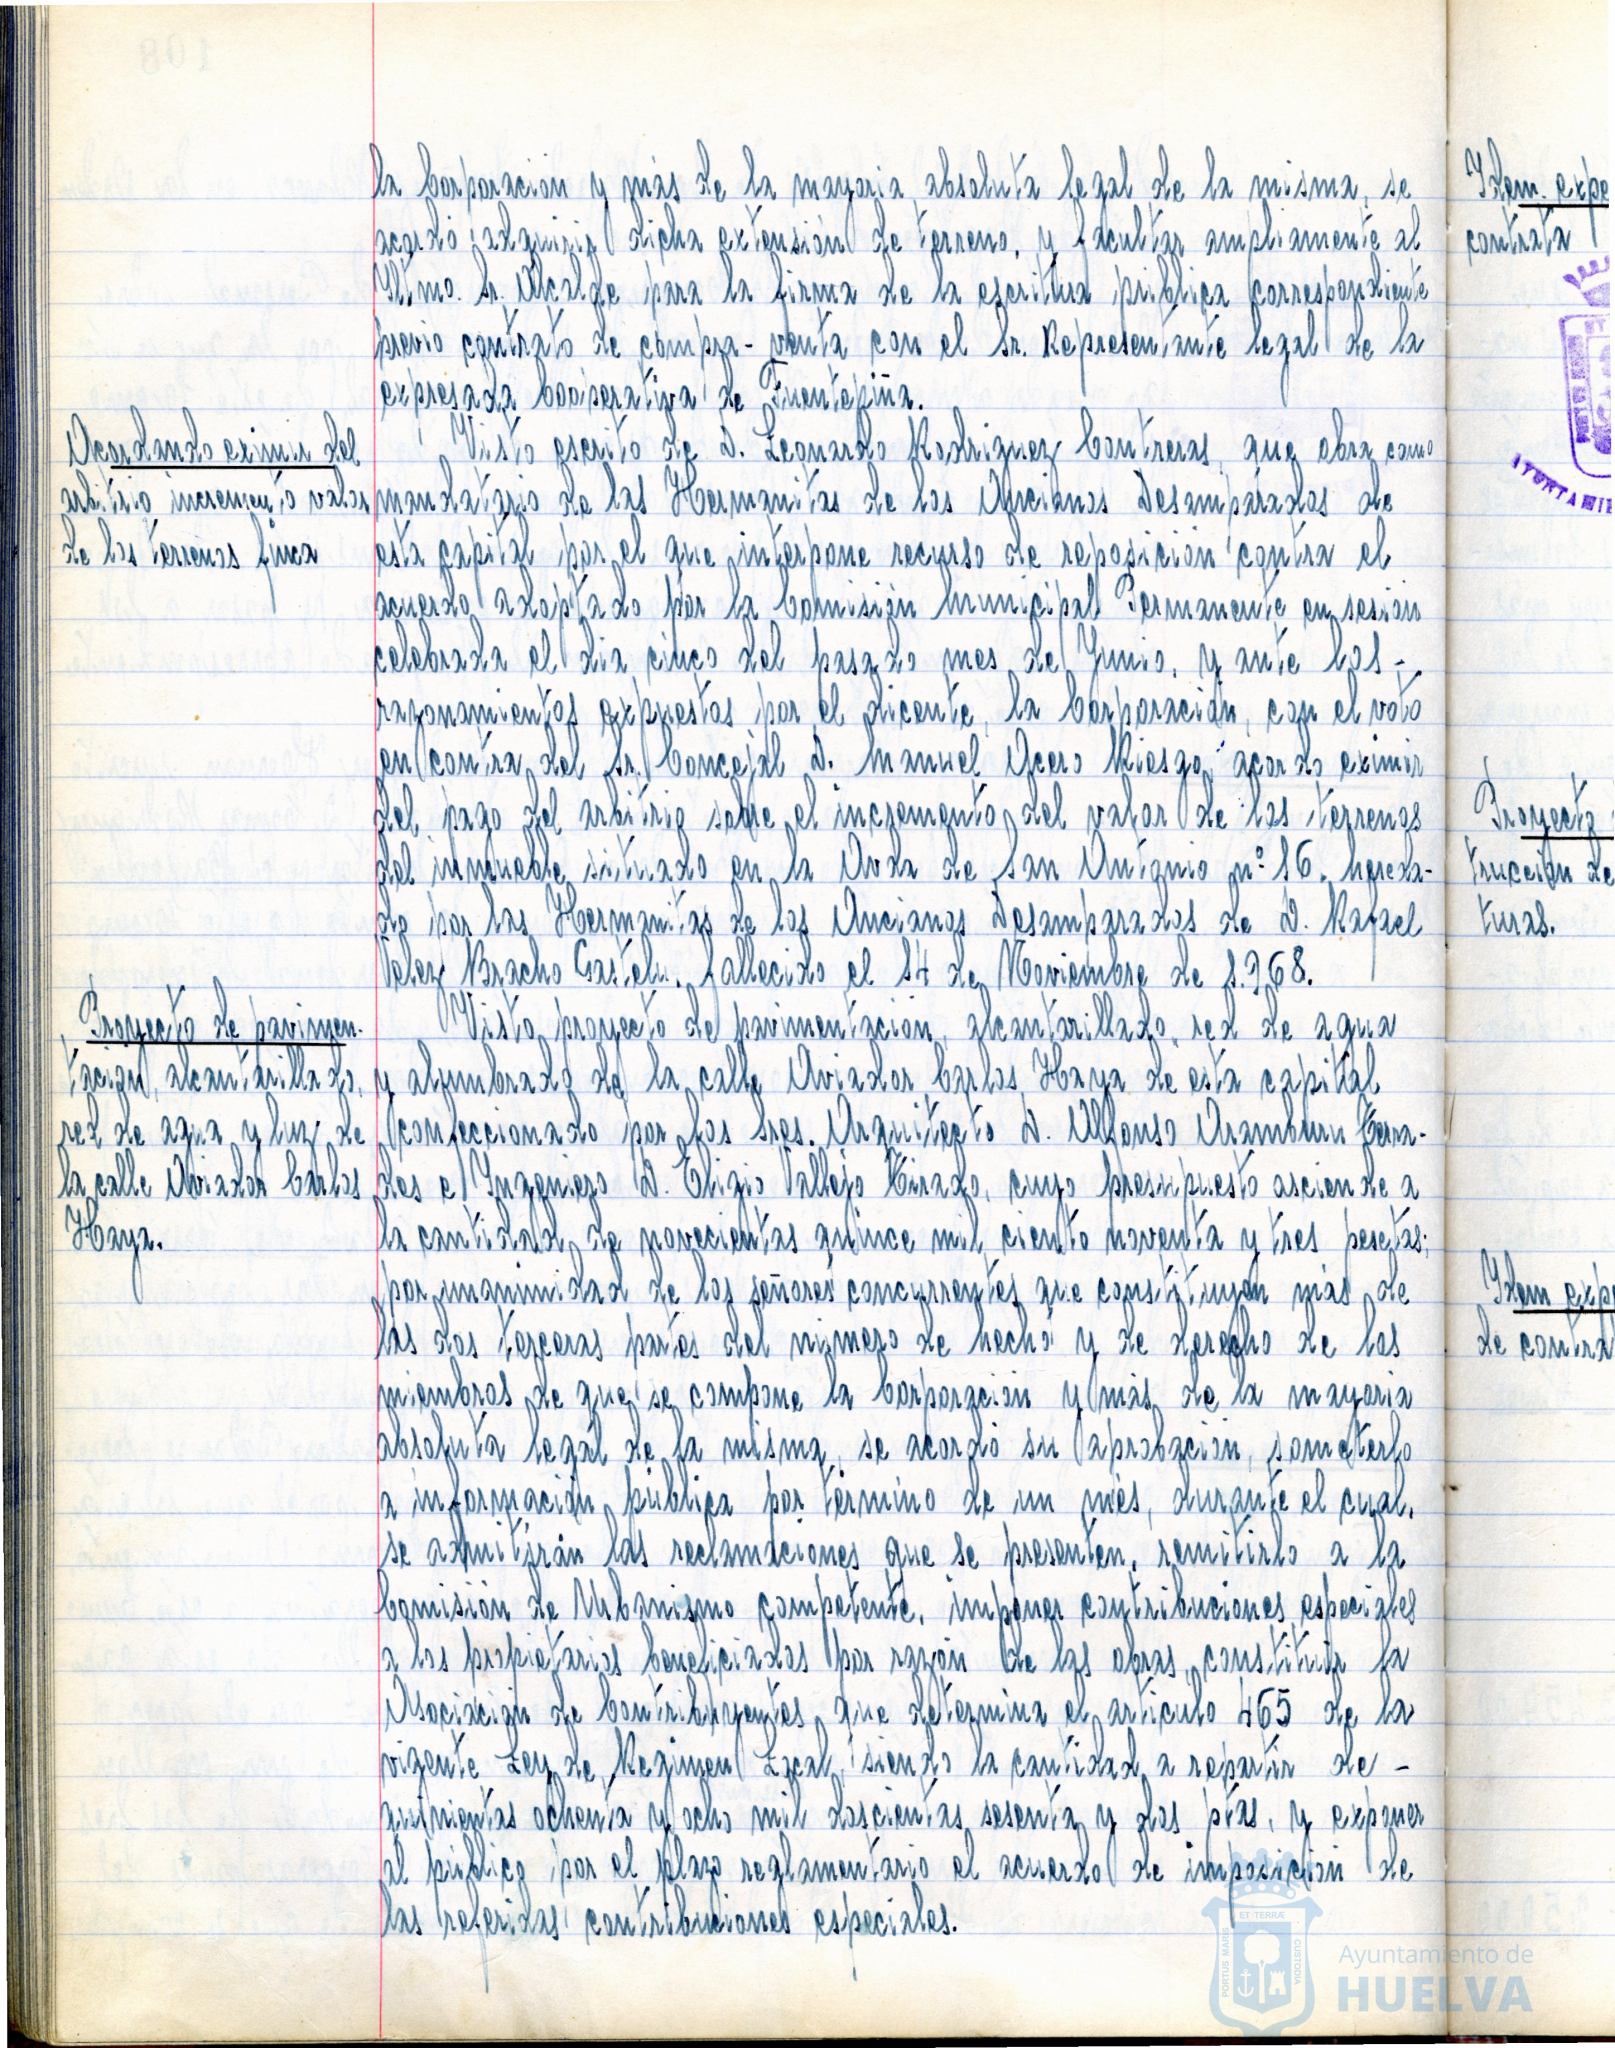 la Corporación y más de la mayoria absoluta legal de la misma, se
acordó adquirir dicha extensión de terreno, y facultar ampliamente al
Iltmo. Sr. Alcalde para la firma de la escritura pública correspondiente
previo contrato de compra-venta con el Sr. Representante legal de la
expresada Cooperativa de Fuentepiña.
Acordando eximir del
arbitrio incremento valor
de los terrenos finca
Visto escrito de D. Leonardo Rodriguez Contreras, que obra como
mandatario de las Hermanitas de los Ancianos Desamparados de
esta capital por el que interpone recurso de reposición contra el
acuerdo adoptado por la Comisión Municipal Permanente en sesión
celebrada el dia cinco del pasado mes de Junio, y ante los -
razonamientos expuestos por el dicente, la Corporación, con el voto
en contra del Sr. Concejal D. Manuel Acero Riesgo, acordo eximir
del pago del arbitrio sobre el incremento del valor de los terrenos
del inmueble situado en la Avda de San Antonio nº 16, hereda-
do por las Hermanitas de los Ancianos Desamparados de D. Rafael
Velez Bracho Gastelu, fallecido el 14 de Noviembre de 1.968.
Proyecto de pavimen-
tación, alcantarillado,
red de agua y luz de
la calle Aviador Carlos
Haya.
Visto proyecto de pavimentación, alcantarillado, red de agua
y alumbrado de la calle Aviador Carlos Haya de esta capital
confeccionado por los Sres. Arquitecto D. Alfonso Aramburu Terra-
des e Ingeniero D. Eligio Vallejo Tirado, cuyo presupuesto asciende a
la cantidad de novecientas quince mil ciento noventa y tres pesetas;
por unanimidad de los señores concurrentes que constituyen más de
las dos terceras partes del número de hecho y de derecho de los
miembros de que se compone la Corporación y más de la mayoria
absoluta legal de la misma, se acordó su aprobación, someterlo
a información pública por término de un mes, durante el cual,
se admitirán las reclamaciones que se presenten, remitirlo a la
Comisión de Urbanismo competente, imponer contribuciones especiales
a los propietarios beneficiados por razón de las obras, constituir la
Asociación de Contribuyentes que determina el articulo 465 de la
vigente Ley de Regimen Local, siendo la cantidad a repartir de -
quinientas ochenta y ocho mil doscientas sesenta y dos ptas, y exponer
al público por el plazo reglamentario el acuerdo de imposición de
las referidas contribuciones especiales.
Idem. expe
contrata
AYUNTAMIE
Proyecto
trucción de
turas.
Idem expe
de contrat
PORTUS MARIS ET TERRÆ CUSTODIA
Ayuntamiento de
HUELVA